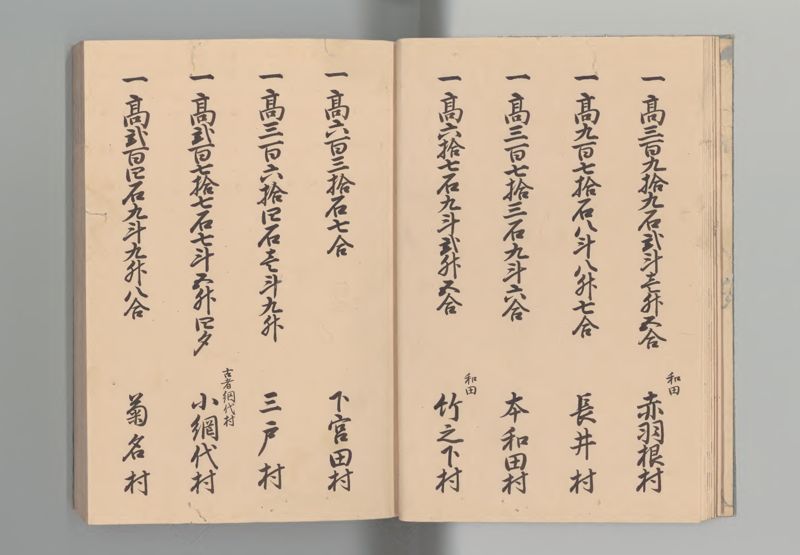 一 高三百九拾九石弐斗壱升五合 和田 赤羽根村
一 高九百七拾石八斗八升七合 長井村
一 高三百七拾三石九斗六合 本和田村
一 高六拾七石九斗弐升五合 和田 竹之下村
一 高六百三拾石七合 下宮田村
一 高三百六拾四石壱斗九升 三戸村
一 高弐百七拾七石七斗五升四夕 古者網代村 小網代村
一 高弐百四石九斗九升八合 菊名村